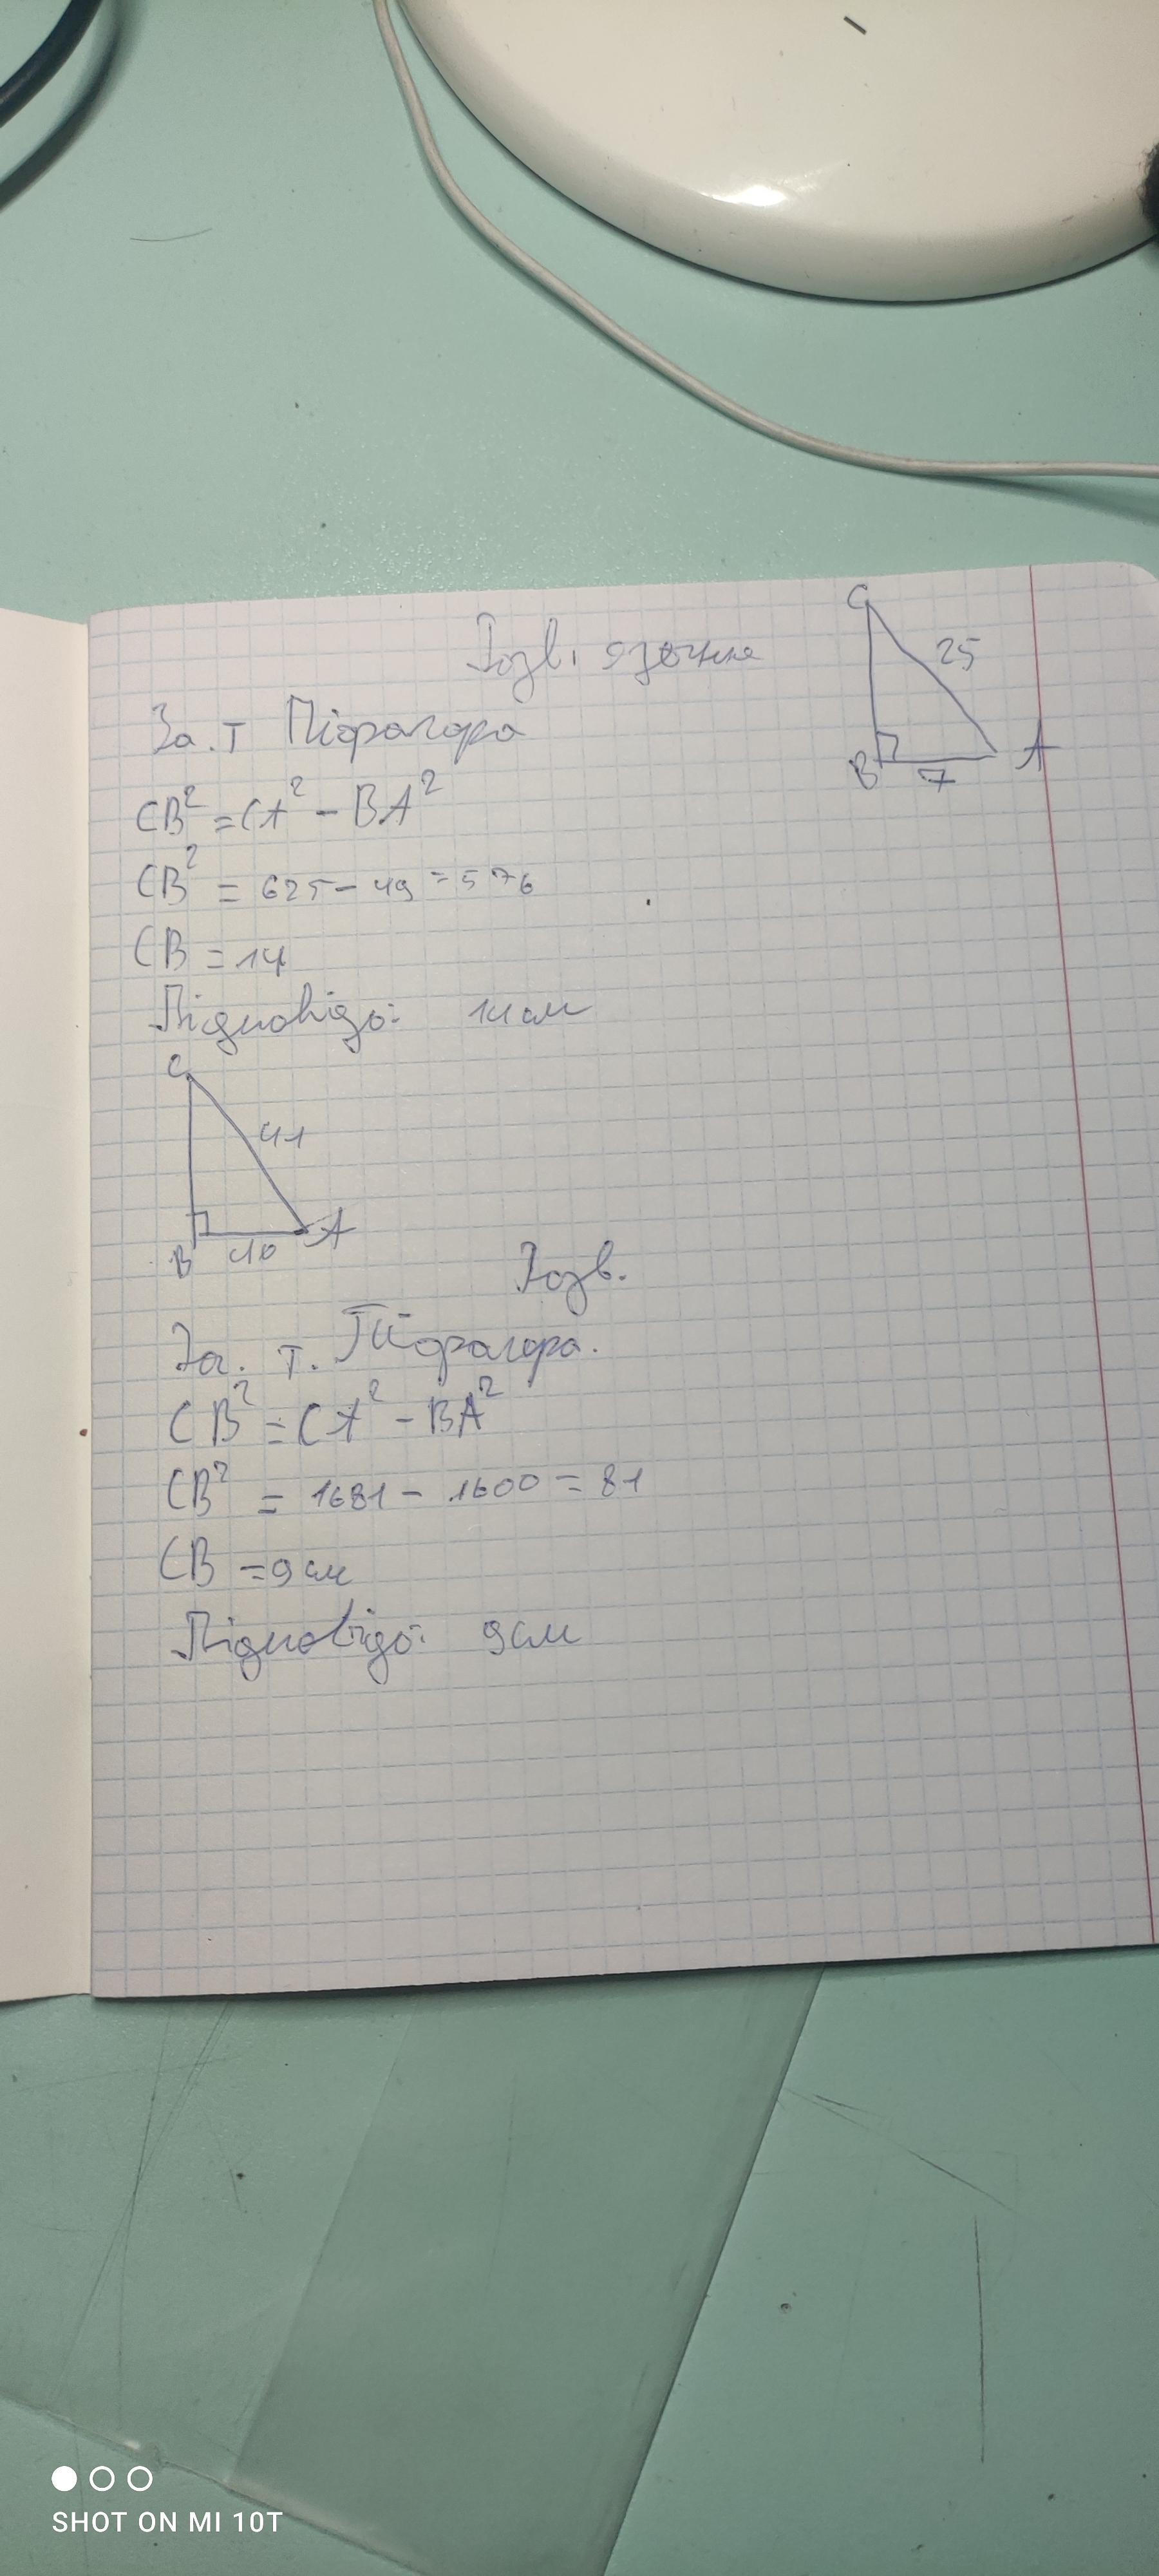 Розв, язання
C
25
B
7
A
За. т Піфагора
CB² = CA² - BA²
CB² = 625 - 49 = 576
CB = 14
Відповідь: 14 см
C
41
B
40
A
Розв.
За. т. Піфагора.
CB² = CA² - BA²
CB² = 1681 - 1600 = 81
CB = 9 см
Відповідь: 9 см
SHOT ON MI 10T